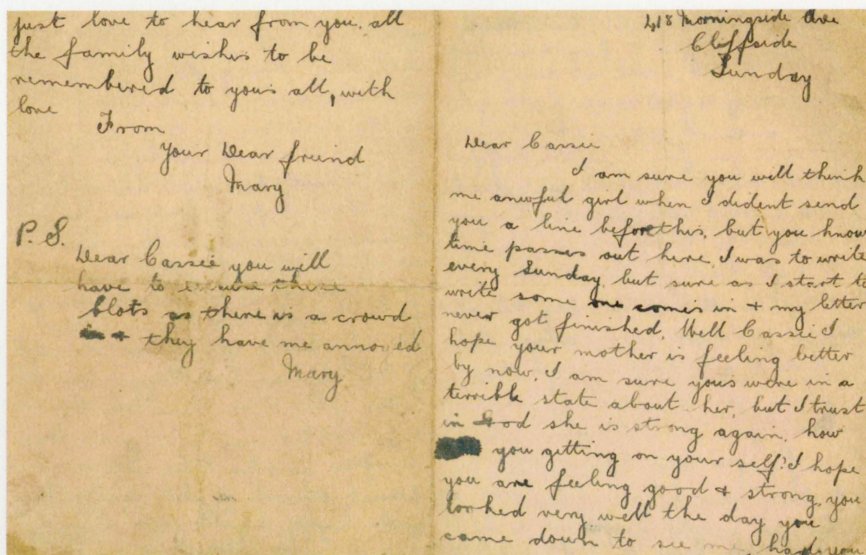 just love to hear from you. all
the family wishes to be
remembered to yous all, with
love
From
Your Dear friend
Mary
P. S.
Dear Cassie you will
have to these
blots as there is a crowd
in & they have me annoyed
Mary
418 Morningside Ave
Cliffside
Sunday
Dear Cassie
I am sure you will think
me anwful girl when I dident send
you a line before this, but you know
time passes out here, I was to write
every Sunday, but sure as I start to
write some one comes in & my letter
never got finished, Well Cassie I
hope your mother is feeling better
by now, I am sure yous were in a
terrible state about her, but I trust
in God she is strong again, how
you getting on your self? I hope
you are feeling good & strong, you
looked very well the day you
came down to see me, had you